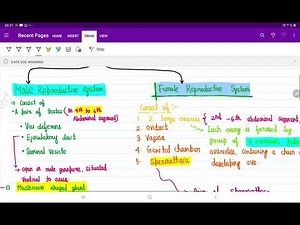 Recent Pages
HOME
INSERT
DRAW
VIEW
Male Reproductive System
• Consist of
• A pair of testes (in 4th to 6th
Abdominal segment)
• Vas deferens
• Ejaculatory duct
• Seminal vesicle
• Open in male gonopore, situated
Ventral to anus
Mushroom shaped gland
Female Reproductive System
Consist of :-
1 2 large ovaries
2 oviduct
3 Vagina
4 Genital chamber
5 Spermatheca
2nd - 6th abdominal segment
→ Each ovary is formed by
group of 8 ovarian tubes
ovarioles, containing a chain
developing ova
Pair of Spermatheca